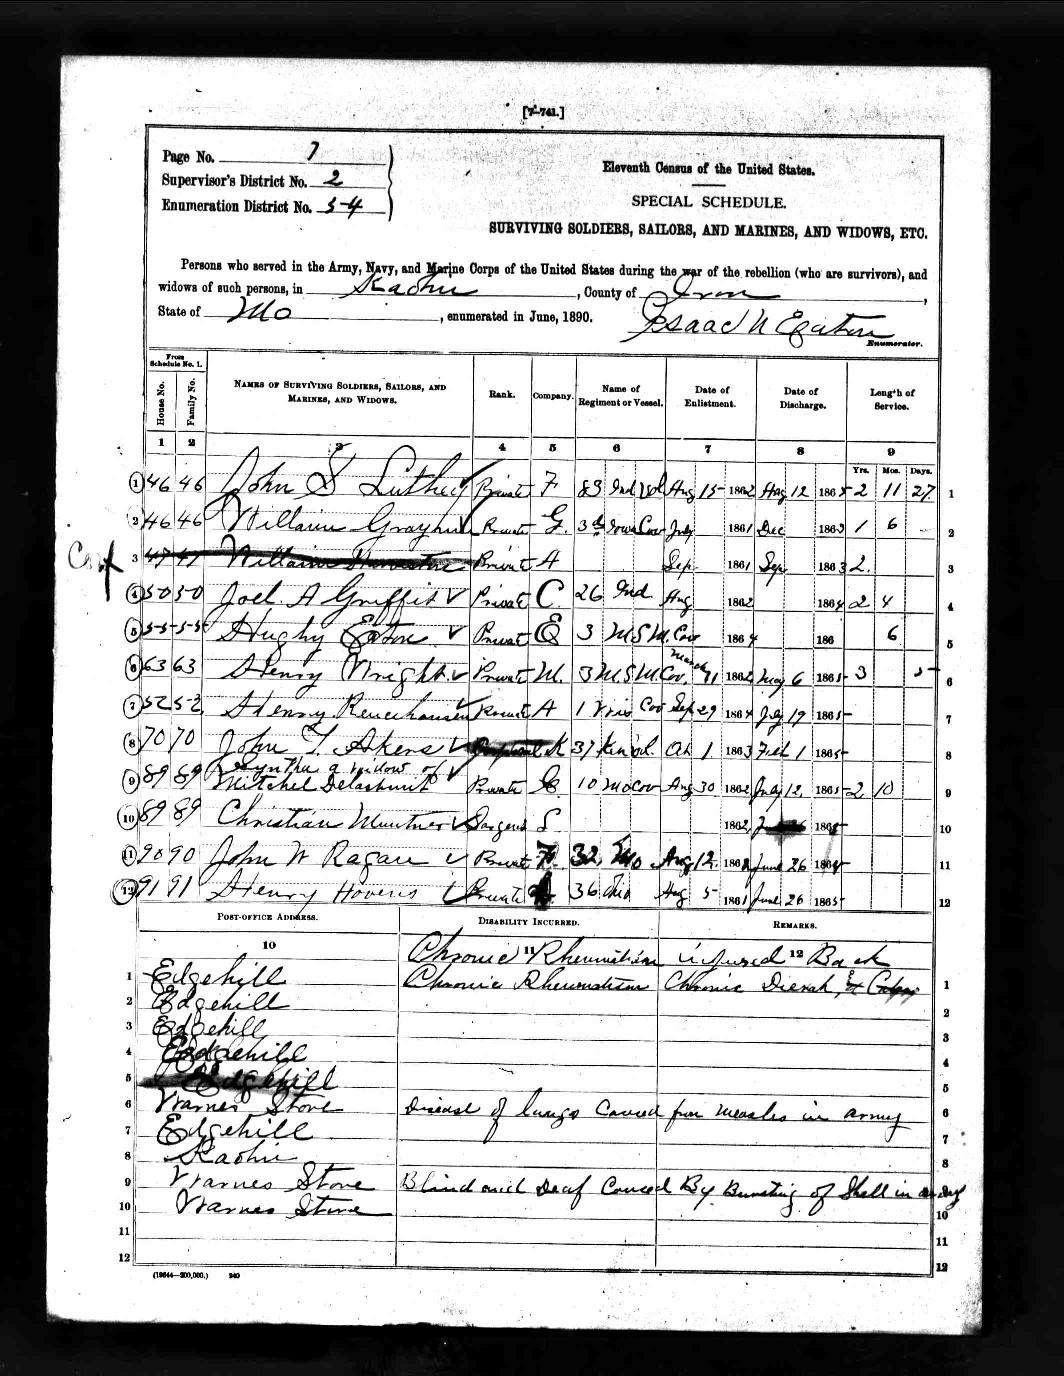 [7-741.]
Page No. 7
Supervisor's District No. 2
Enumeration District No. 54
Eleventh Census of the United States.
SPECIAL SCHEDULE.
SURVIVING SOLDIERS, SAILORS, AND MARINES, AND WIDOWS, ETC.
Persons who served in the Army, Navy, and Marine Corps of the United States during the war of the rebellion (who are survivors), and
widows of such persons, in Kaolin, County of Iron,
State of Mo, enumerated in June, 1890. Isaac N Eaton
Enumerator.
From Schedule No. 1.
House No. Family No. NAMES OF SURVIVING SOLDIERS, SAILORS, AND MARINES, AND WIDOWS. Rank. Company. Name of Regiment or Vessel. Date of Enlistment. Date of Discharge. Length of Service.
1 2 3 4 5 6 7 8 9
Yrs. Mos. Days.
1 46 46 John S Private F 83 Ind Vol Aug 15 1862 Aug 12 1865 2 11 27 1
2 46 46 William Private G. 3d Iowa Cav July 1861 Dec 1863 1 6 2
3 47 47 William Private A Sep 1861 Sep 1863 2. 3
4 50 50 Joel A Griffit Private C 26 Ind. Aug 1862 1864 2 4 4
5 55 55 Hughy Eaton Private E 3 M S M Cav 1864 186 6 5
6 63 63 Henry Wright Private M. 3 M S M. Cav. March 1862 May 6 1865 3 5 6
7 52 52 Henry Private A 1 Cav Sep 29 1864 July 19 1865 7
8 70 70 John T. Akens K 37 1 1863 Feb 1 1865 8
9 89 89 a widow of
Mitchel Delashmit Private 10 Mo Cav Aug 30 1862 July 12, 1865 2 10 9
10 89 89 Christian S 1862, 1865 10
11 90 90 John W Ragan Private 32, Mo Aug 12. 1862 June 26 11
12 91 91 Henry Private 36 Aug 5 1861 June 26 1865 12
POST-OFFICE ADDRESS. DISABILITY INCURRED. REMARKS.
10 11 12
Chronic Rheumatism injured Back
1 Edgehill Chronic Rheumatism Chronic 1
2 Edgehill 2
3 Edgehill 3
4 Edgehill 4
5 Edgehill 5
6 Warnes Store Disease of lungs Caused from measles in army 6
7 Edgehill 7
8 Kaolin 8
9 Warnes Store Blind and Deaf Caused By Bursting of Shell in 9
10 Warnes Store 10
11 11
12 12
(19644—200,000.) 240